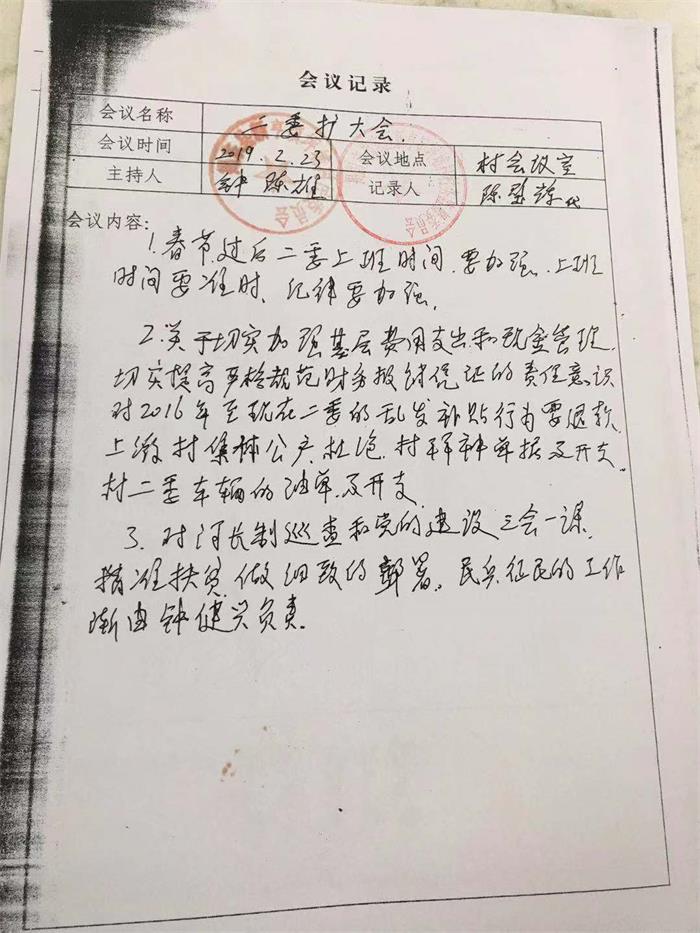 会议记录
会议名称 二委扩大会.
会议时间 2019.2.23 会议地点 村会议室
主持人 钟 陈雄 记录人 陈
会议内容:
1.春节过后二委上班时间.要加强.上班
时间要准时、纪律要加强.
2.关于切实加强基层费用支出和现金管理.
切实提高严格规范财务报销凭证的责任意识
对2016年至现在二委的乱发补贴行为要退款.
上缴村集体公产.杜绝.村 单据及开支.
村二委车辆的油单.及开支.
3、对河长制巡查和党的建设三会一课.
精准扶贫.做细致的部署。民兵征民的工作
由钟健兴负责.